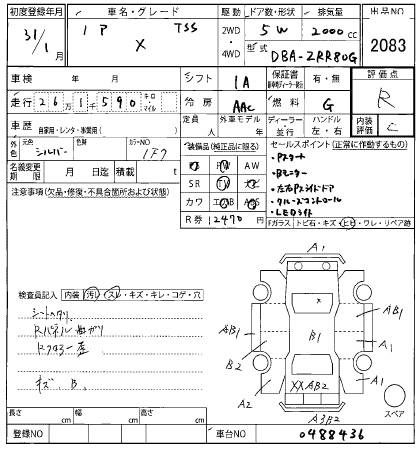 初度登録年月 車名・グレード 駆動 ドア数・形状 排気量 出品NO
31/1月 X TSS 2WD ・ 4WD 5 W 2000 cc 2083
型式 DBA-ZRR80G
車検 年 月 シフト IA 保証書 有・無 評価点
走行 26 1590 キロ・マイル 冷房 AAC 燃料 G R
車歴 自家用・レンタ・事業用( ) 定員 人 外車モデル 年 ディーラー・並行 ハンドル 左・右 内装評価 C
外色 シルバー 色替 カラーNO 1F7 装備品(純正品に限る) セールスポイント(正常に作動するもの)
名義変更期限 月 日迄 積載 t AW
SR TV
カワ
R券 12470 円
・Pスタート
・Bモニター
・左右Pスライドドア
・クルーズコントロール
・LEDライト
注意事項(欠品・修復・不具合箇所および状態)
Fガラス トビ石・キズ・ヒビ・ワレ・リペア跡
A1
検査員記入 内装 汚レ・スレ・キズ・キレ・コゲ・穴
シートヘタリ
Rパネル曲ガリ
キズ、B.
AB1 B1 AB1
B2 A1
A2 XX AB2 A1
A3B2
スペア
長さ cm 幅 cm 高さ cm
登録NO 車台NO 0488436